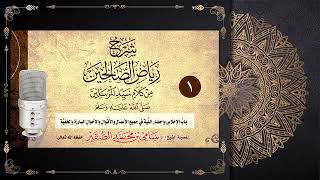 شرح
رياض الصالحين
من كلام سيد المرسلين
صلى الله عليه وسلم
١
باب الإخلاص وإحضار النية في جميع الأعمال والأقوال والأحوال البارزة والخفية
لفضيلة الشيخ / سامي بن محمد الصقير حفظه الله تعالى